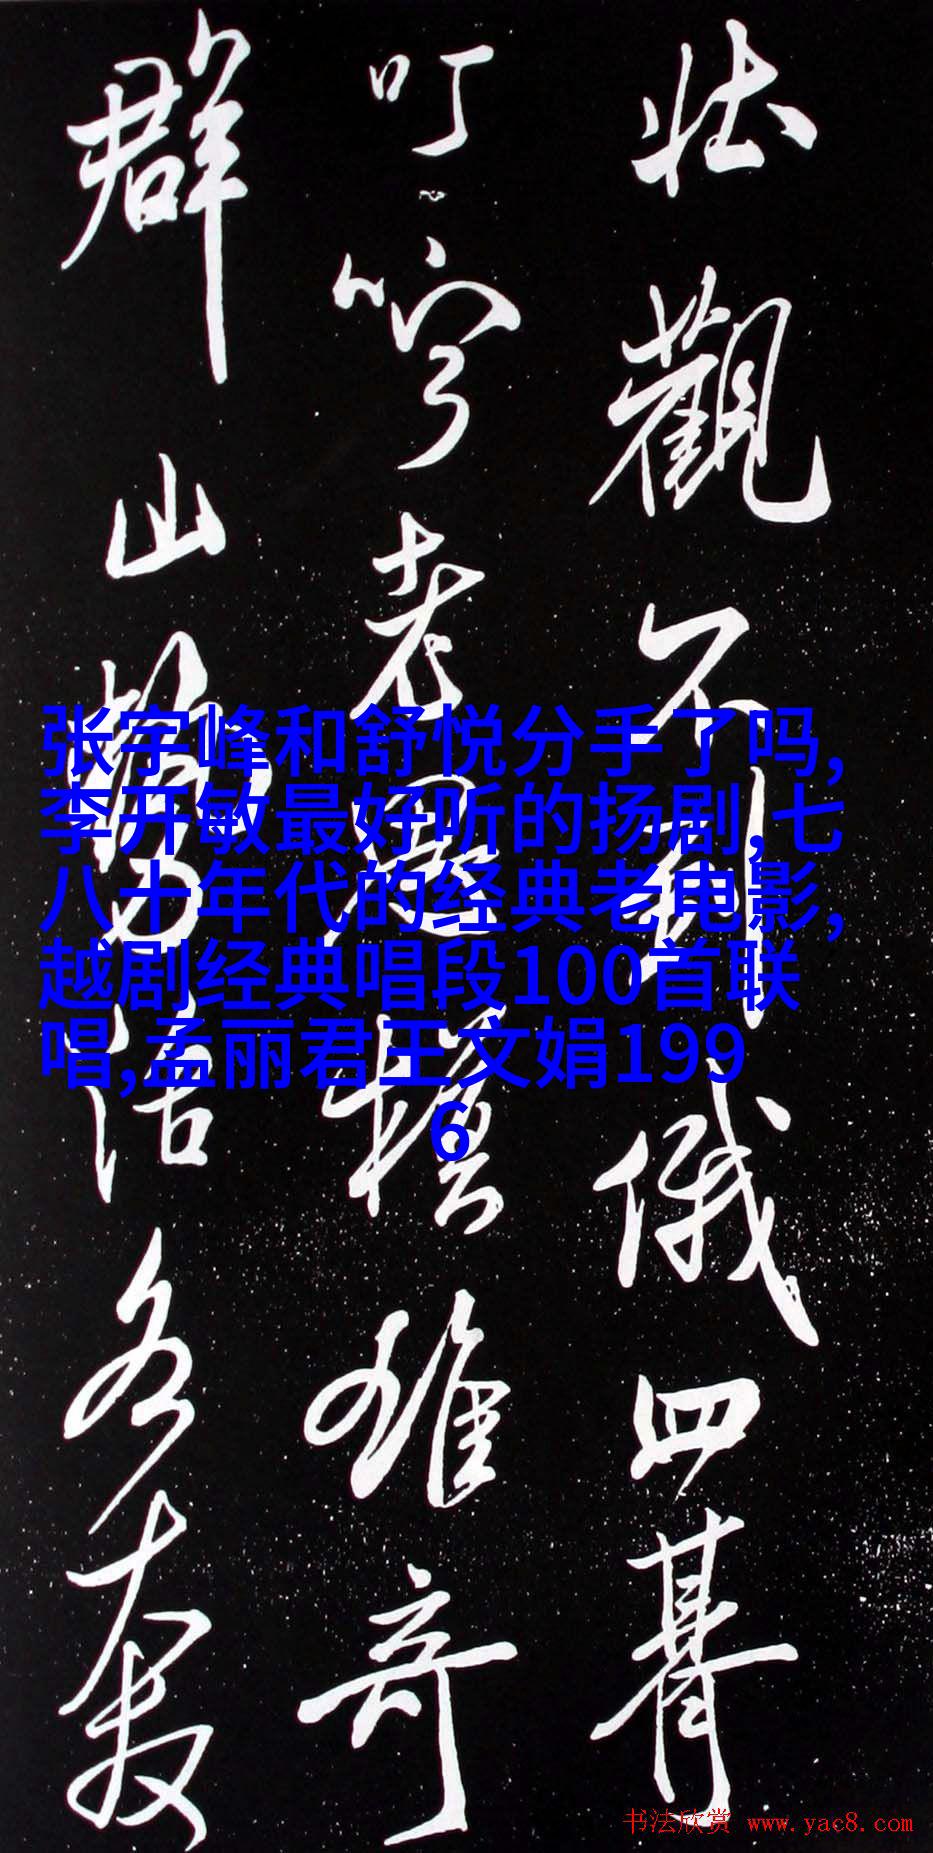 壯觀不到俄四朞
叮嚀老雄奇
群山勢活各
张宇峰和舒悦分手了吗,
李开敏最好听的扬剧,七
八十年代的经典老电影,
越剧经典唱段100首联
唱,孟丽君王文娟199
6
书法欣赏 www.yac8.com